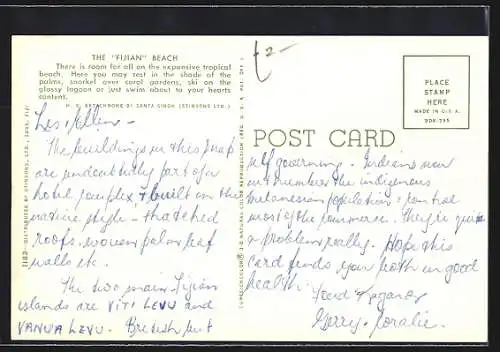 THE "FIJIAN" BEACH
There is room for all on the expansive tropical
beach. Here you may rest in the shade of the
palms, snorkel over coral gardens, ski on the
glossy lagoon or just swim about to your hearts
content.
H. S. EKTACHROME BY SANTA SINGH (STINSONS LTD.)
The buildings in this snap
are undoubtedly part of a
hotel complex, & built in the
native style - thatched
roofs, woven palm leaf
walls etc.
The two main Fijian
islands are VITI LEVU and
VANUA LEVU. British but
1183—DISTRIBUTED BY STINSONS, LTD., SUVA, FIJI
NATURAL COLOR REPRODUCTION (REG. U. S. PAT. OFF.)
£2-
POST CARD
PLACE
STAMP
HERE
MADE IN U.S.A.
self governing. Indians now
outnumber the indigenous
Melanesian population & control
most of the commerce. They're quite
a problem really. Hope this
card finds you both in good
health.
Fond Regards
Gerry & Coralie.